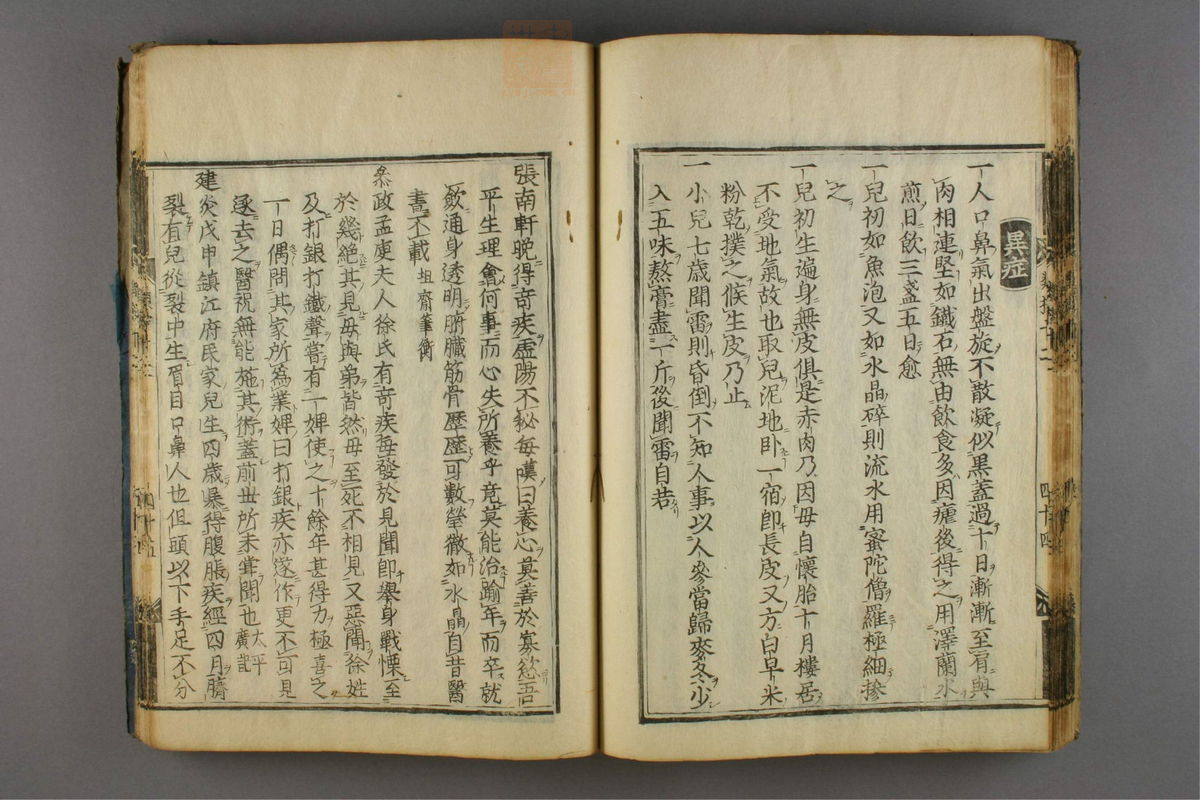 異症
一人口鼻氣出盤旋不散凝似黑蓋過十日漸漸至肩與
肉相連堅如鐵石無由飲食多因瘧後得之用澤蘭水
煎日飲三盞五日愈
一兒初如魚泡又如水晶碎則流水用蜜陀僧羅極細摻
之
一兒初生遍身無皮俱是赤肉乃因母自懷胎十月樓居
不受地氣故也取兒泥地臥一宿即長皮又方白早米
粉乾撲之候生皮乃止
一小兒七歲聞雷則昏倒不知人事以人參當歸麥冬少
入五味熬膏盡一斤後聞雷自若
四十四
張南軒晚得奇疾虛陽不秘每嘆曰養心莫善於寡慾吾
平生理會何事而心失所養乎竟莫能治踰年而卒就
斂通身透明腑臟筋骨歷歷可數瑩徹如水晶自昔醫
書不載 坦齋筆衡
叅政孟庾夫人徐氏有奇疾每發於見聞即舉身戰慄至
於幾絕其見母與弟皆然母至死不相見又惡聞徐姓
及打銀打鐵聲嘗有一婢使之十餘年甚得力極喜之
一日偶問其家所為業婢曰打銀疾亦遂作更不可見
逐去之醫祝無能施其術蓋前世所未嘗聞也 太平廣記
建炎戊申鎮江府民家兒生四歲暴得腹脹疾經四月臍
裂有兒從裂中生眉目口鼻人也但頭以下手足不分